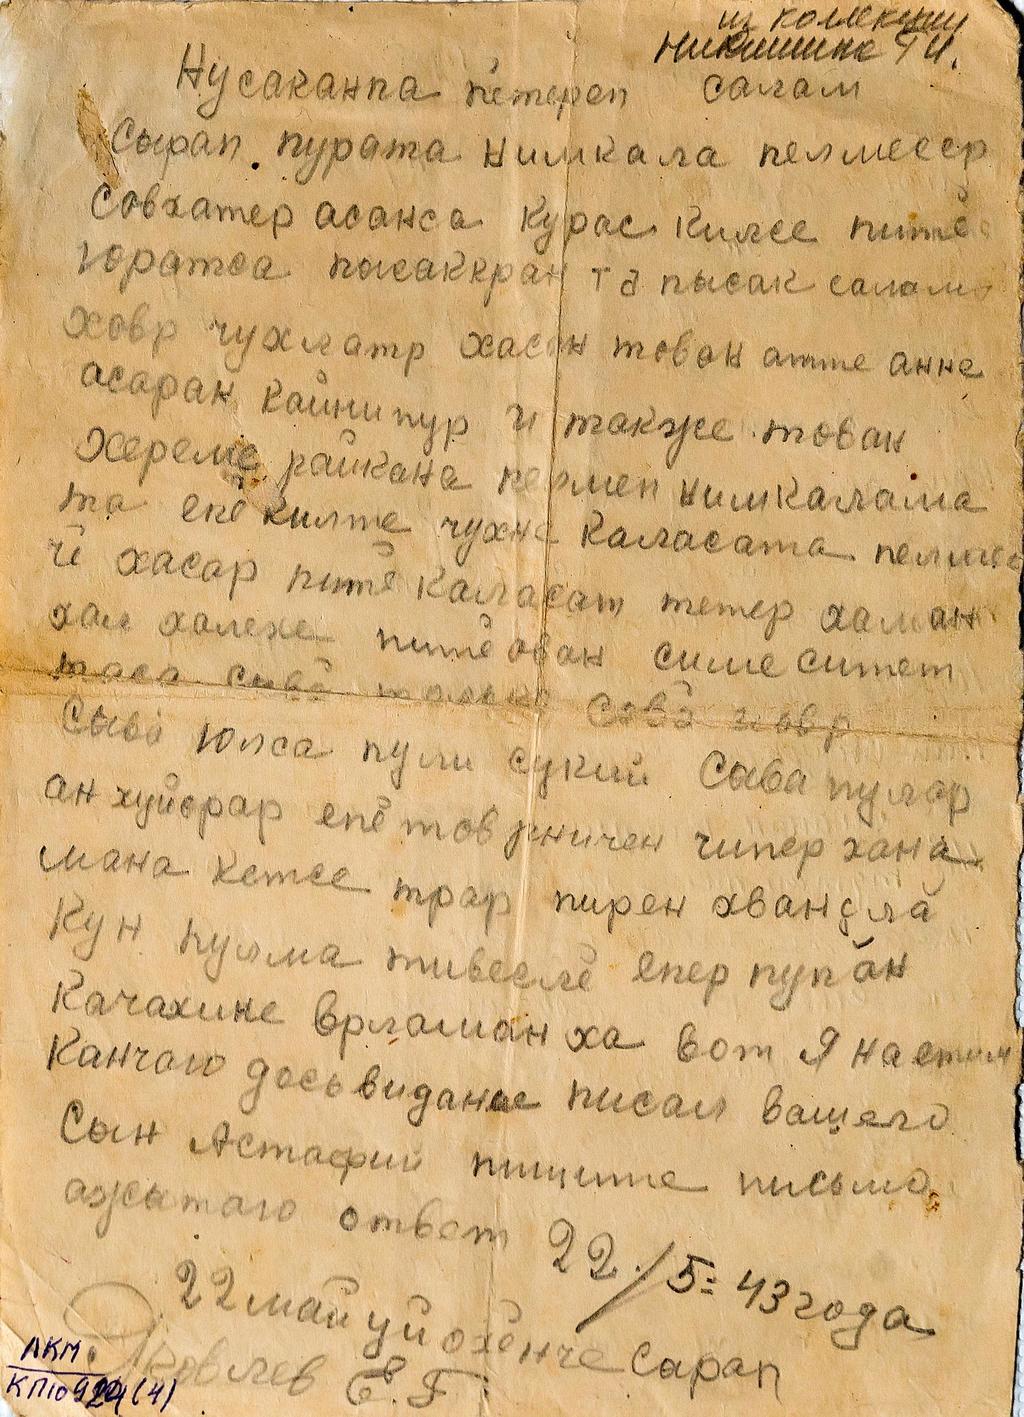 из коллекции
Никишина Г И.
Нусаканпа петереп салам
Сырап пурата нимкала пелмеср
совхатер асанса курас килсе питё
юратса пысаккран та пысак салам
ховр чухлатр хасан тован атте анне
асаран кайнипур и также тован
хереме райкана пелмеп нимкалама
та епё килте чухне каласата пелмес
й хасар питё каласат тетер халман
хал халехе питё аван симе ситет
таса сывё только савё ховр
сыва юлса пули сукий Сава пулар
ан хуйсрар епё тов ничен чипер хана
мана кетсе трар пирен хвансла
кун пулма тивеслё епер пупан
качахине врламан ха вот Я настим
канчаю досьвидание писал вашего
Сын Астафий пишите письмо
ажытаю ответ 22/5=43 года
22 май уй охёнче сарап
Яковлев Е. Г.
АКМ
КП10924(4)